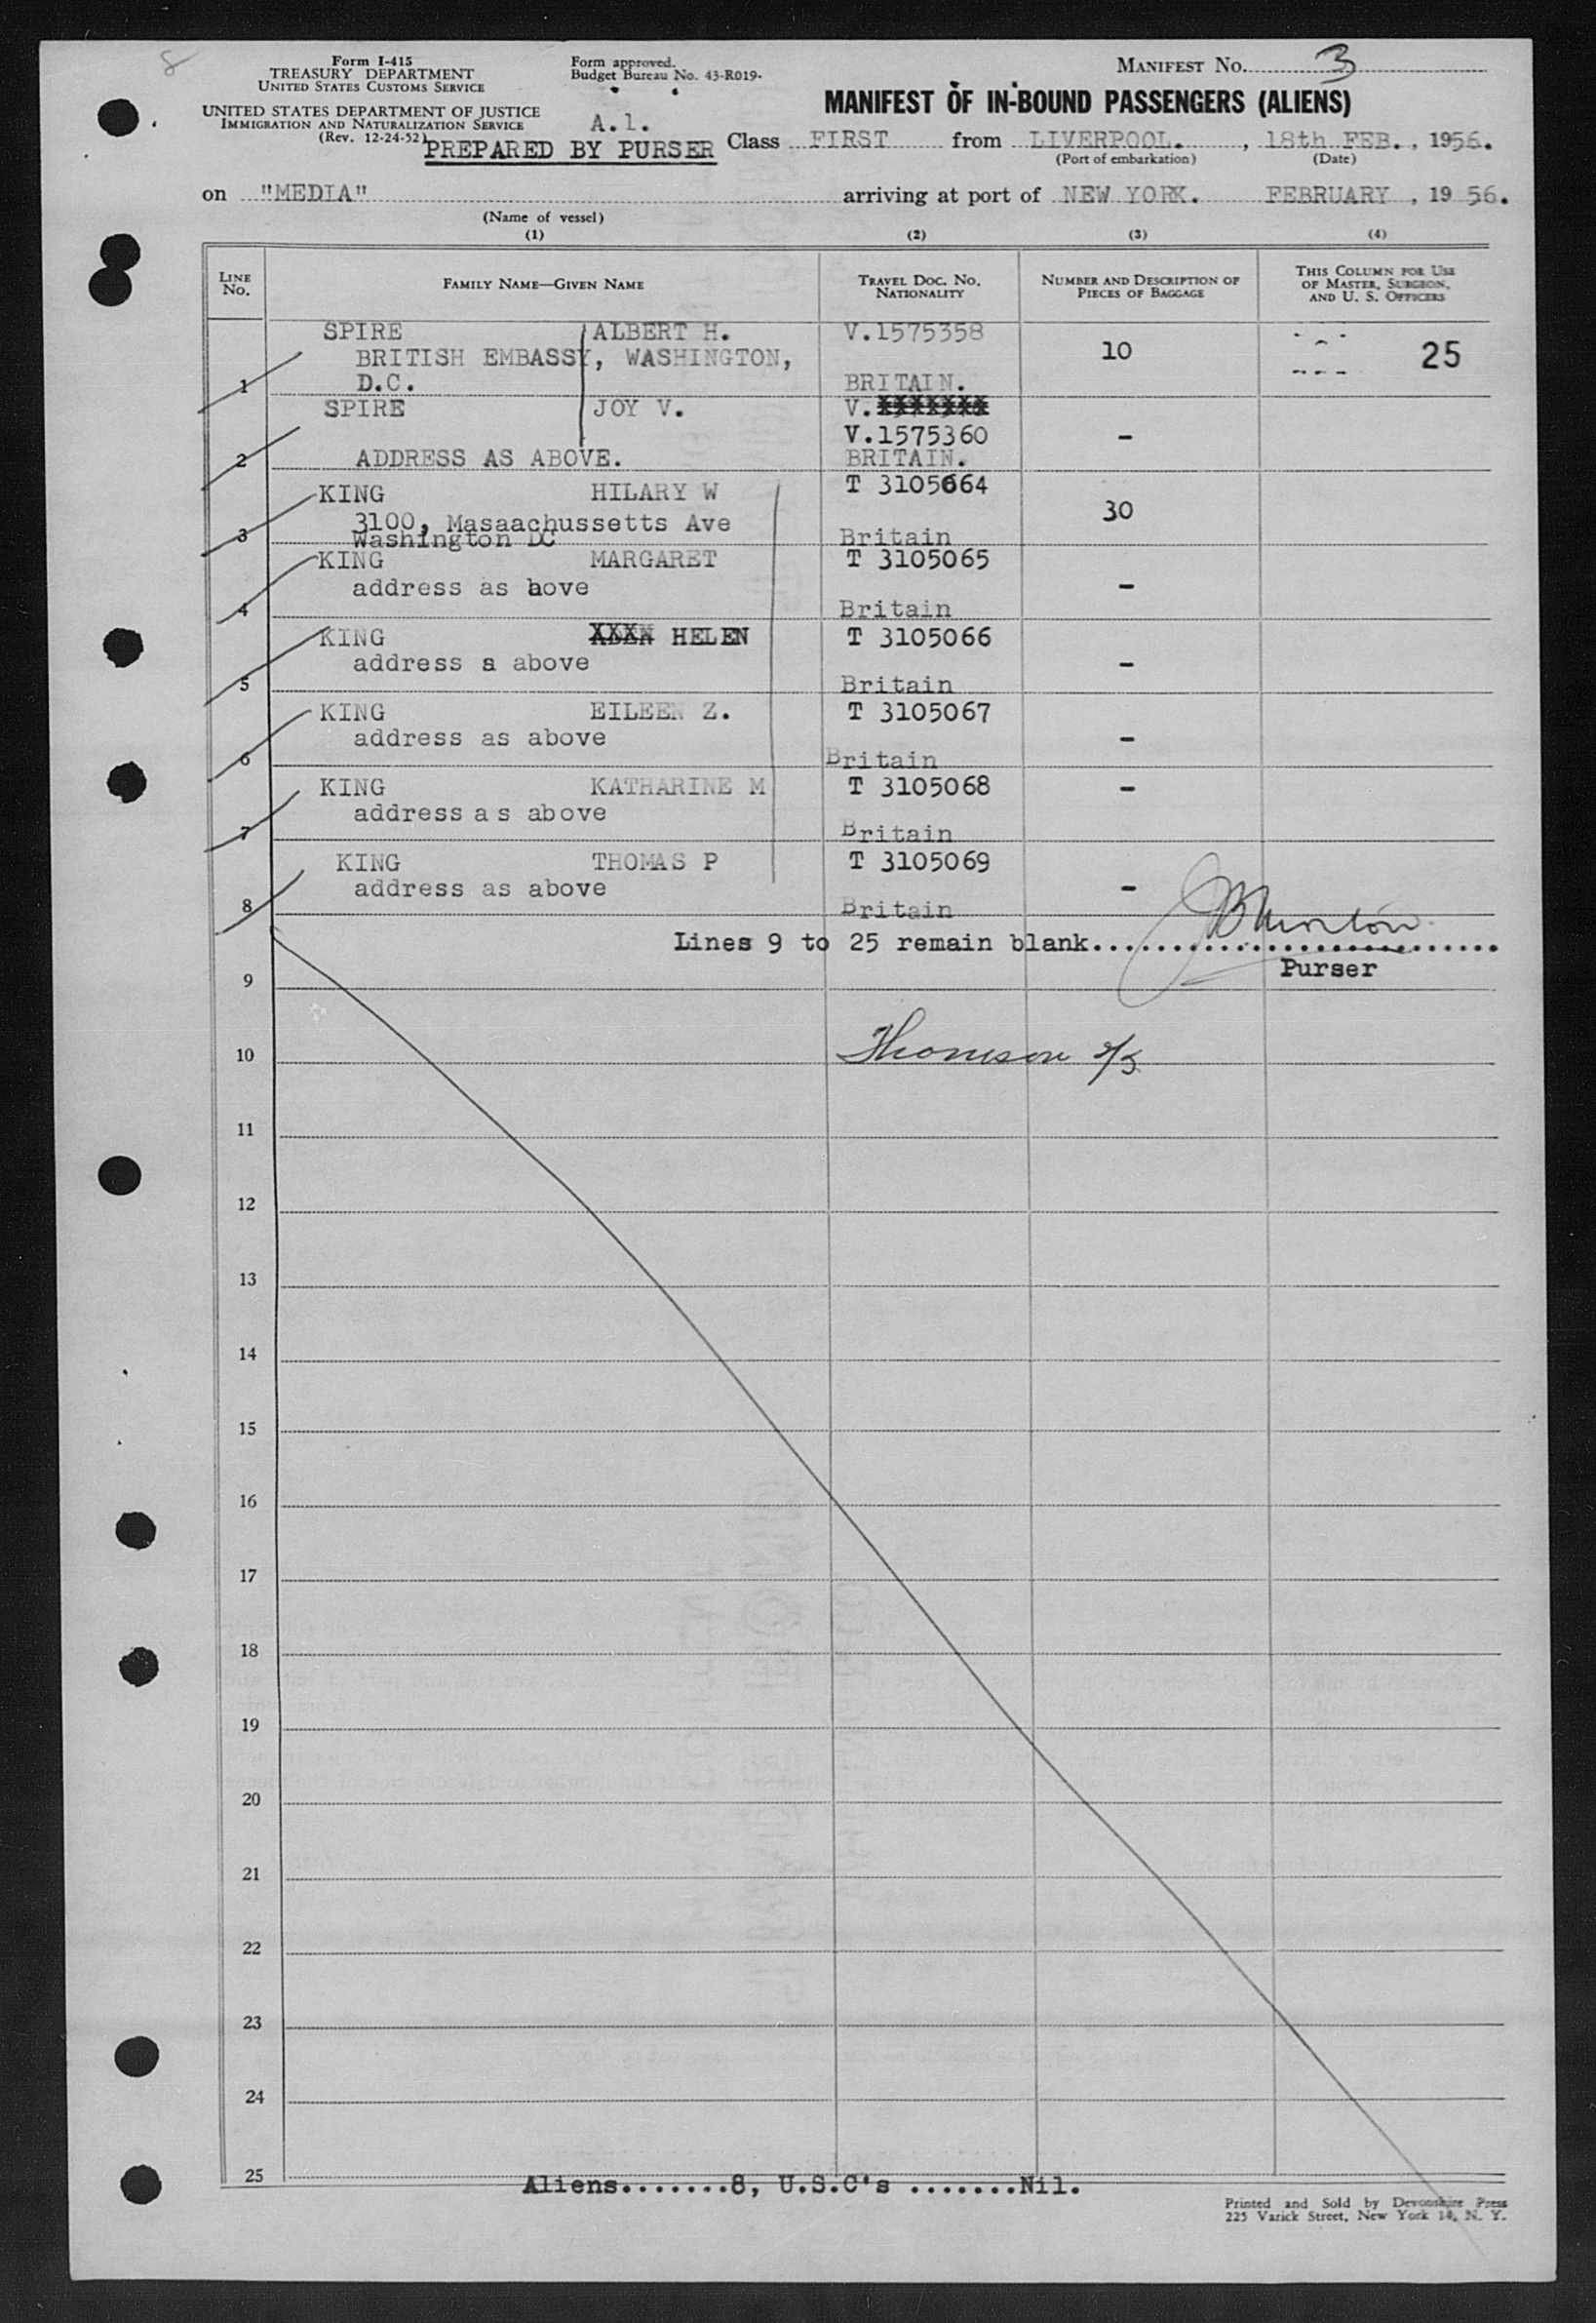 8
Form I-415
TREASURY DEPARTMENT
UNITED STATES CUSTOMS SERVICE
UNITED STATES DEPARTMENT OF JUSTICE
IMMIGRATION AND NATURALIZATION SERVICE
(Rev. 12-24-52)
Form approved.
Budget Bureau No. 43-R019-
A.1.
PREPARED BY PURSER
MANIFEST No. 3
MANIFEST OF IN-BOUND PASSENGERS (ALIENS)
Class FIRST from LIVERPOOL. , 18th FEB. , 1956.
(Port of embarkation) (Date)
on "MEDIA" arriving at port of NEW YORK. FEBRUARY , 1956.
(Name of vessel)
(1) (2) (3) (4)
LINE No. FAMILY NAME—GIVEN NAME TRAVEL DOC. NO. NATIONALITY NUMBER AND DESCRIPTION OF PIECES OF BAGGAGE THIS COLUMN FOR USE OF MASTER, SURGEON, AND U. S. OFFICERS
SPIRE ALBERT H. V.1575358
BRITISH EMBASSY, WASHINGTON, 10 25
1 D.C. BRITAIN.
SPIRE JOY V. V. XXXXXXX
V.1575360 -
2 ADDRESS AS ABOVE. BRITAIN.
KING HILARY W T 3105664
3100, Masaachussetts Ave 30
3 Washington DC Britain
KING MARGARET T 3105065
address as bove -
4 Britain
KING XXXX HELEN T 3105066
address a above -
5 Britain
KING EILEEN Z. T 3105067
address as above -
6 Britain
KING KATHARINE M T 3105068 -
address as above
7 Britain
KING THOMAS P T 3105069
address as above -
8 Britain
Lines 9 to 25 remain blank..............................
Purser
9
Thomson
10
11
12
13
14
15
16
17
18
19
20
21
22
23
24
25
Aliens.......8, U.S.C's .......Nil.
Printed and Sold by Devonshire Press
225 Varick Street, New York 14, N. Y.